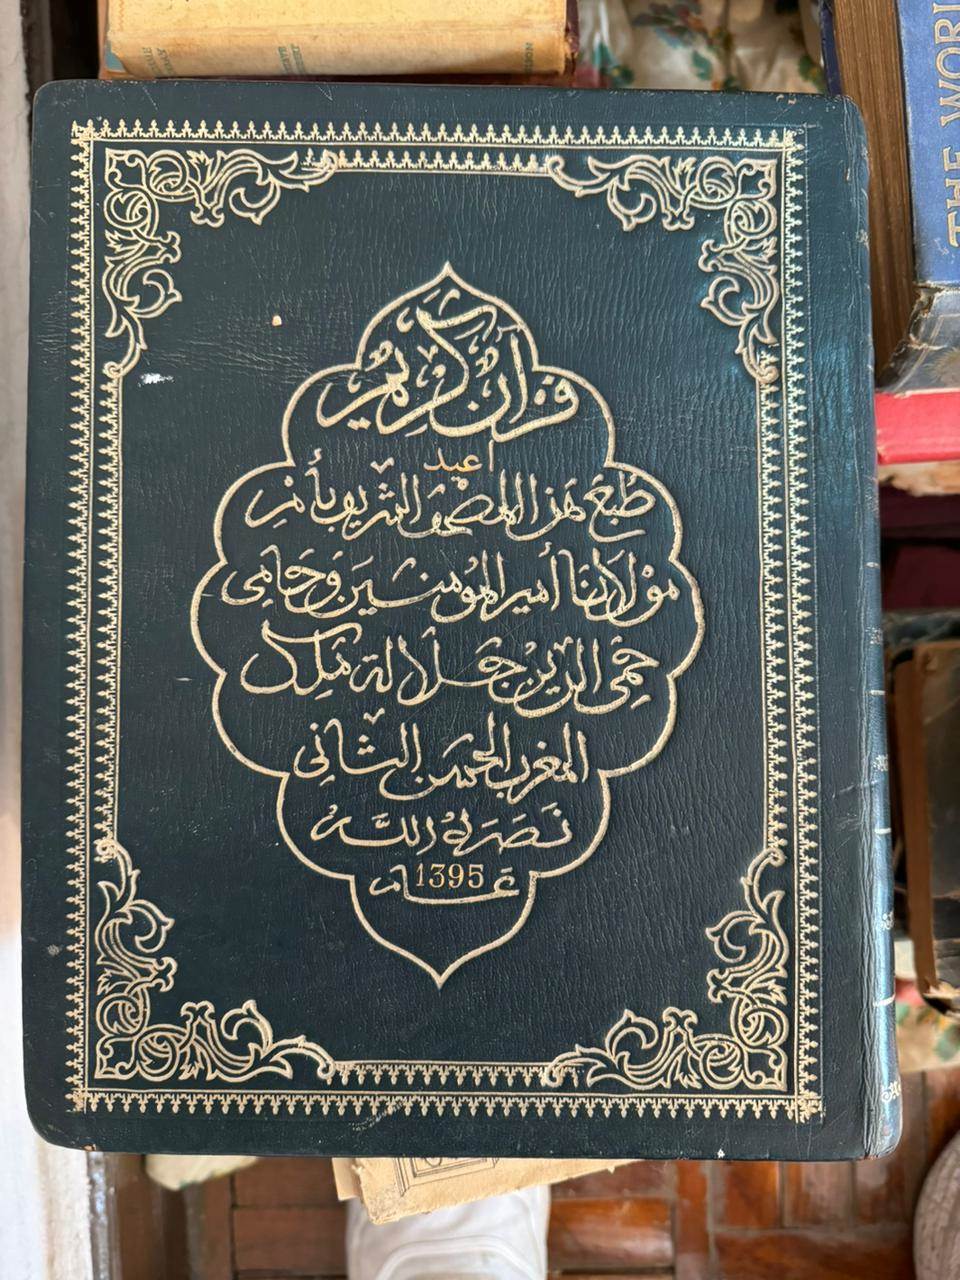 قرآن كريم
أعيد
طبع هذا المصحف الشريف بأمر
مولانا أمير المؤمنين وحامي
حمى الدين جلالة ملك
المغرب الحسن الثاني
نصره الله
عام 1395
THE WORL